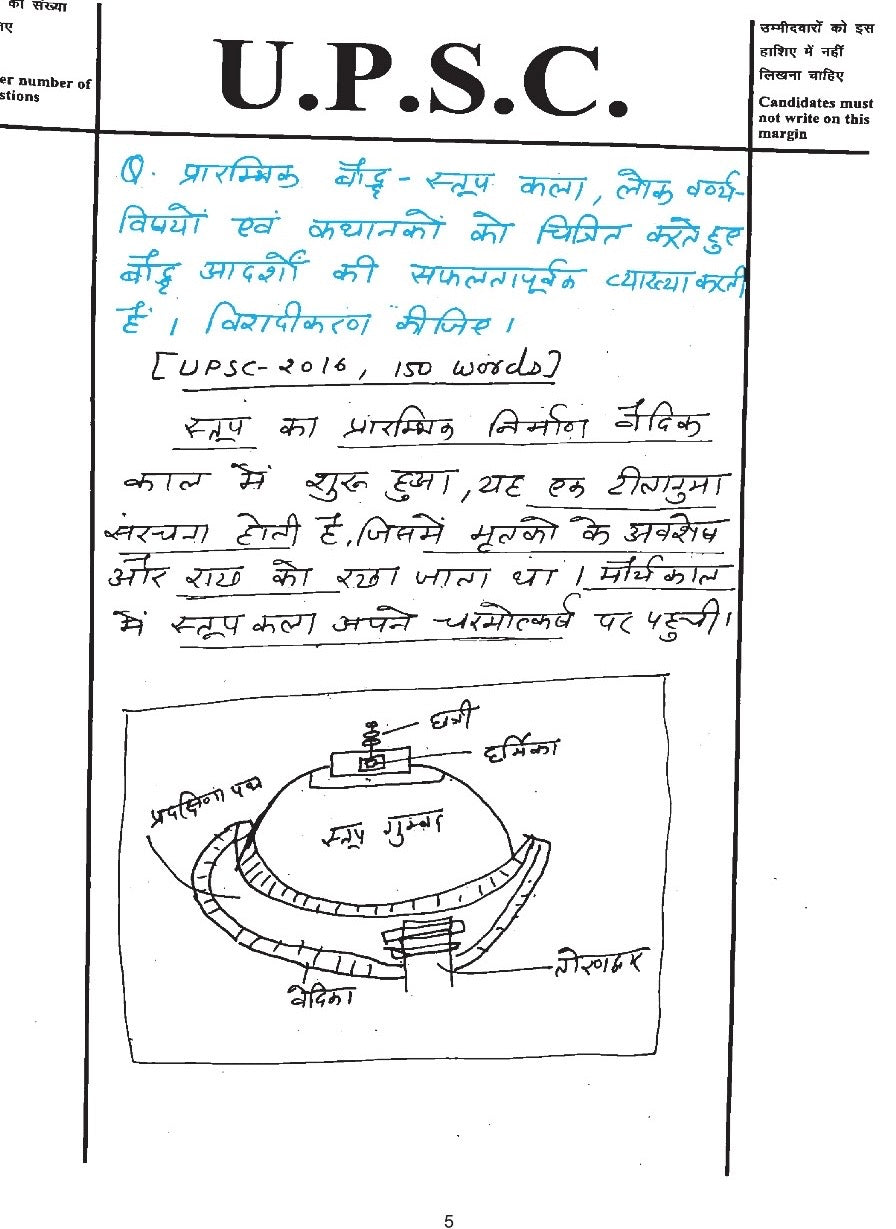 की संख्या
er number of
stions
U.P.S.C.
उम्मीदवारों को इस
हाशिए में नहीं
लिखना चाहिए
Candidates must
not write on this
margin
Q. प्रारम्भिक बौद्ध - स्तूप कला, लोक वर्ण्य-
विषयों एवं कथानकों को चित्रित करते हुए
बौद्ध आदर्शों की सफलतापूर्वक व्याख्या करती
है । विशदीकरण कीजिए ।
[UPSC-2016, 150 words]
स्तूप का प्रारम्भिक निर्माण वैदिक
काल में शुरू हुआ, यह एक टीलानुमा
संरचना होती है, जिसमें मृतको के अवशेष
और राख को रखा जाता था । मौर्य काल
में स्तूप कला अपने चरमोत्कर्ष पर पहुची।
छत्री
हर्मिका
प्रदक्षिणा पथ
स्तूप गुम्बद
तोरणद्वार
वेदिका
5